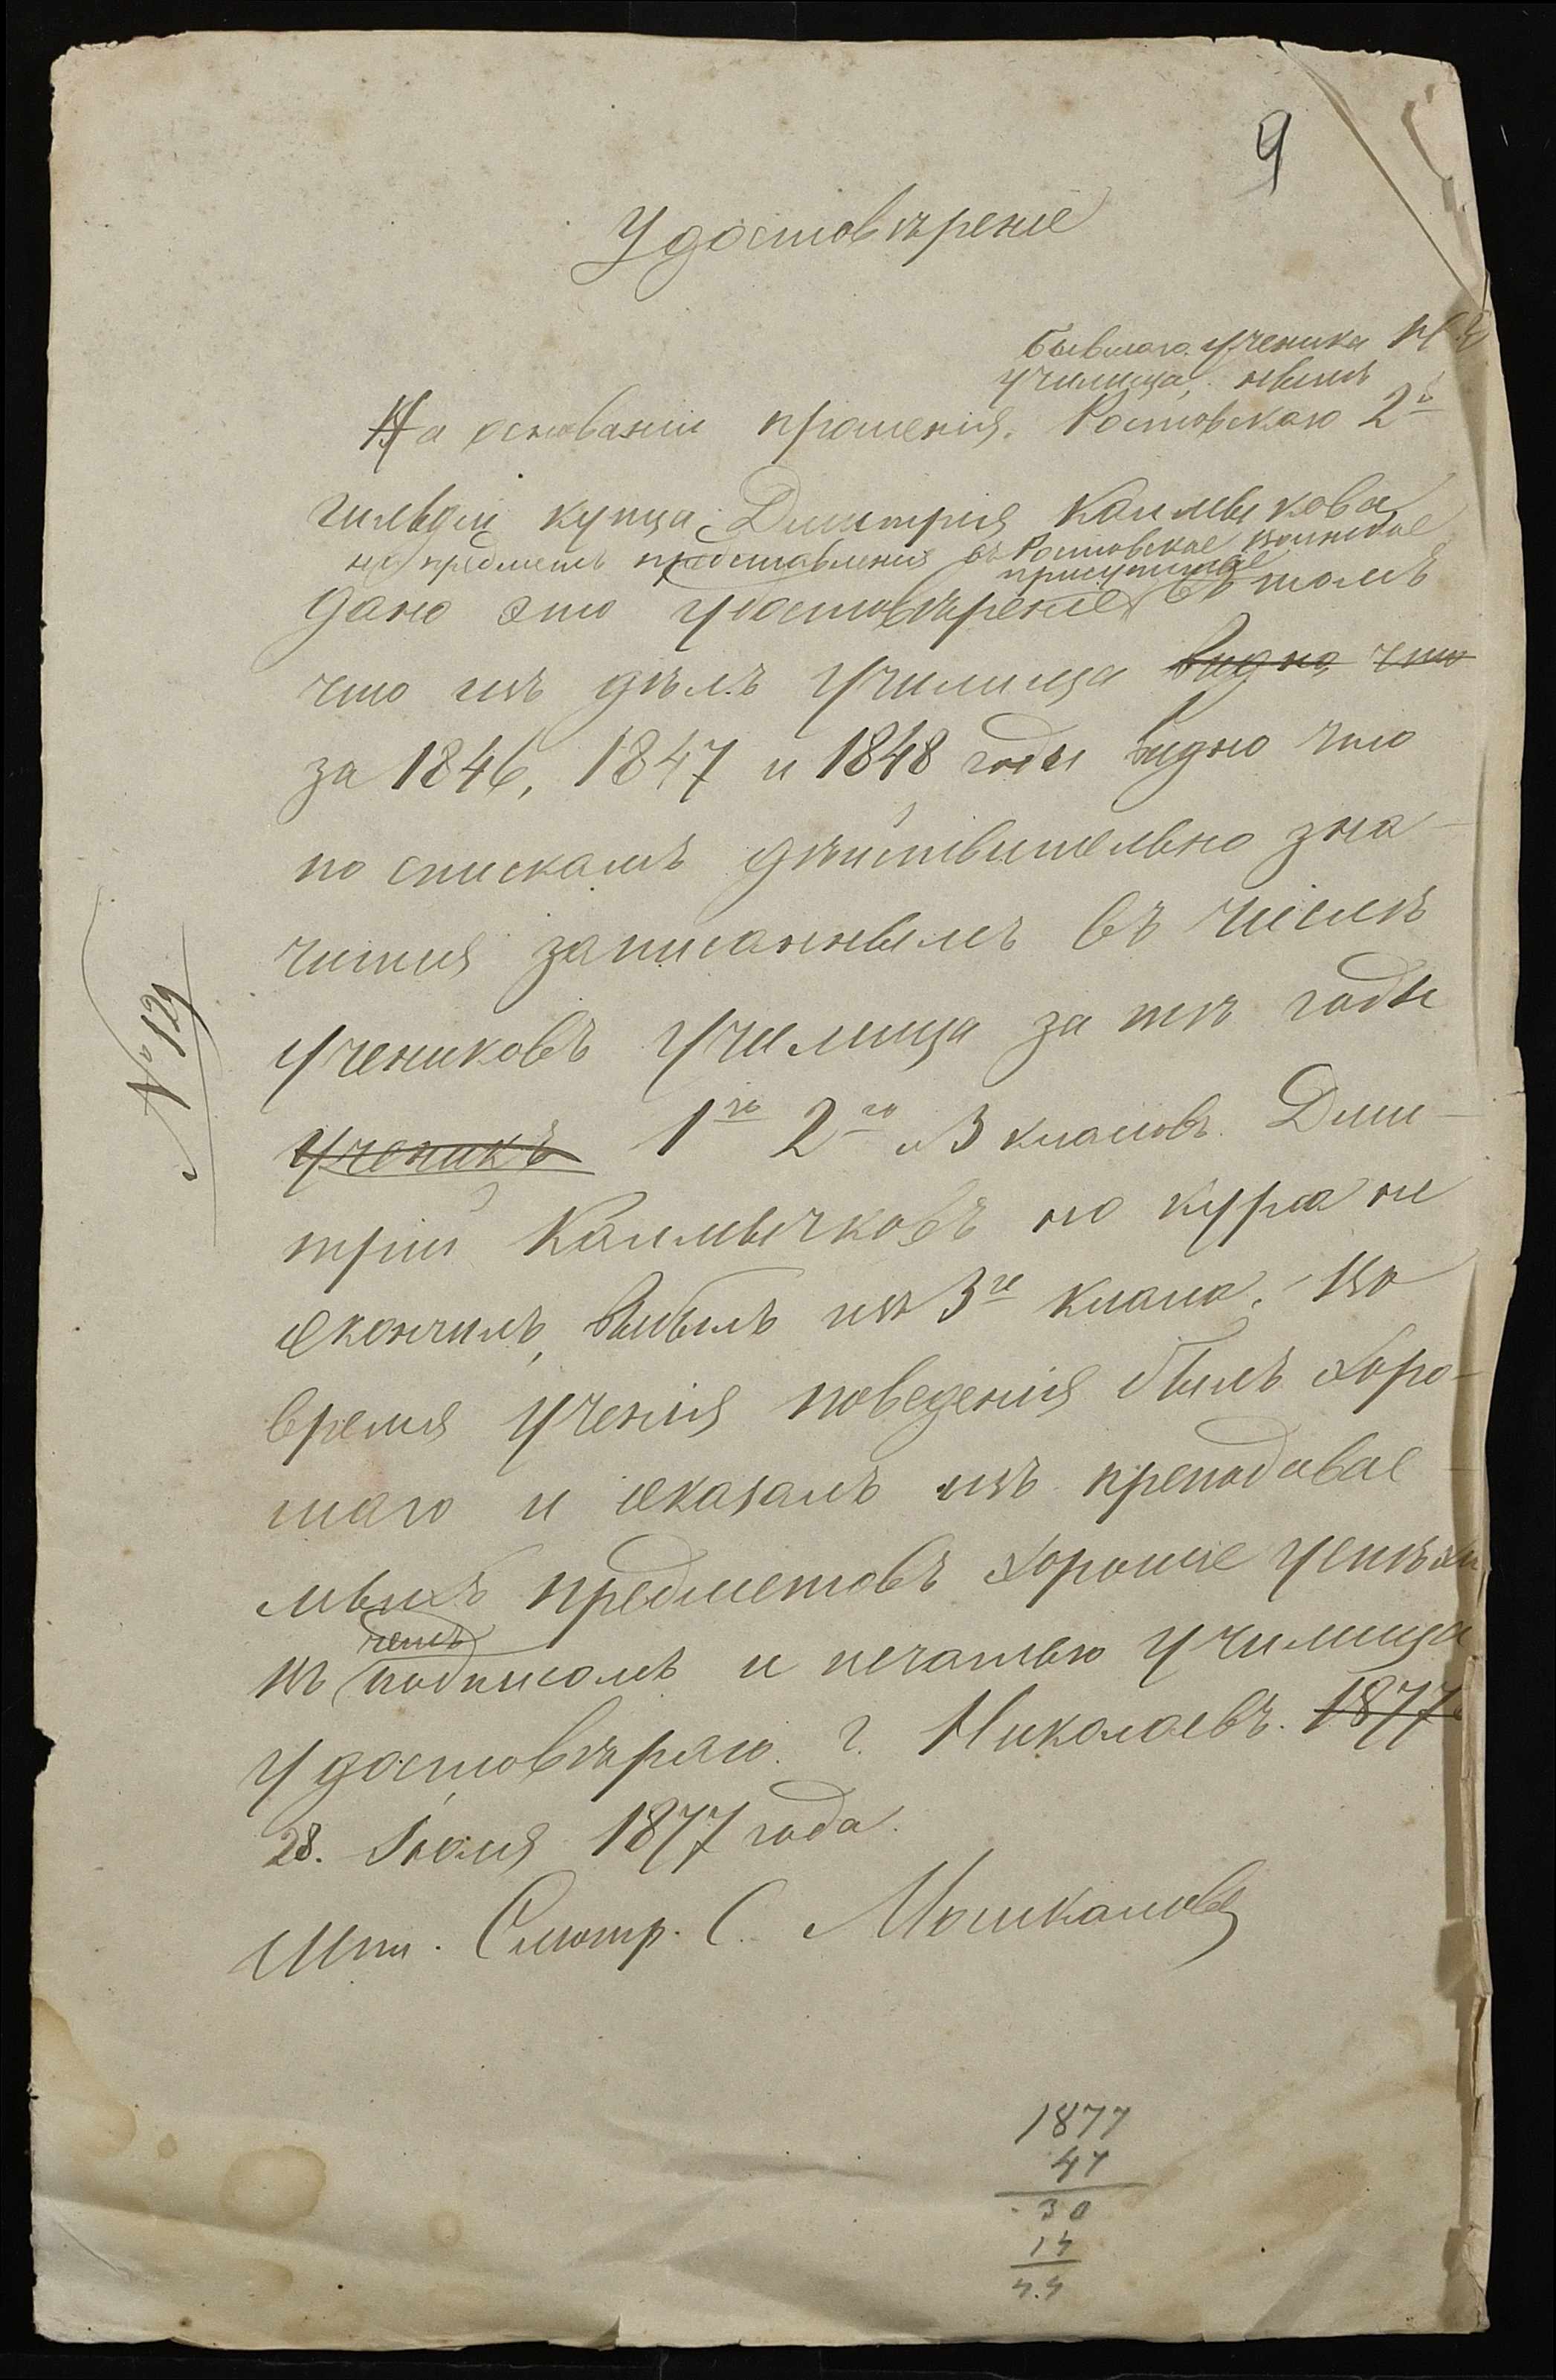 9
Удостовѣреніе
бывшаго ученика Н. У
училища, нынѣ
На основаніи прошенія, Ростовскаго 2й
гильдіи купца Димитрія Калмыкова
на предметъ представленія въ Ростовское воинское
присутствіе
дано это удостовѣреніе въ томъ
что изъ дѣлъ училища видно что
за 1846, 1847 и 1848 годы видно что
по спискамъ дѣйствительно зна-
чится записаннымъ въ числѣ
учениковъ училища за тѣ годы
ученикъ 1го 2го и 3 класовъ Дми-
трій Калмычковъ но курса не
окончилъ, выбылъ изъ 3го класа. Во
время ученія поведенія былъ хоро-
шаго и оказалъ изъ преподавае-
мыхъ предметовъ хорошіе успѣхи
въ чемъ
подписомъ и печатью училища
удостовѣряю. г. Николаевъ. 1877
28. Іюля 1877 года.
Шт. Смотр. С. Мошкаловъ
№ 129
1877
47
30
14
44